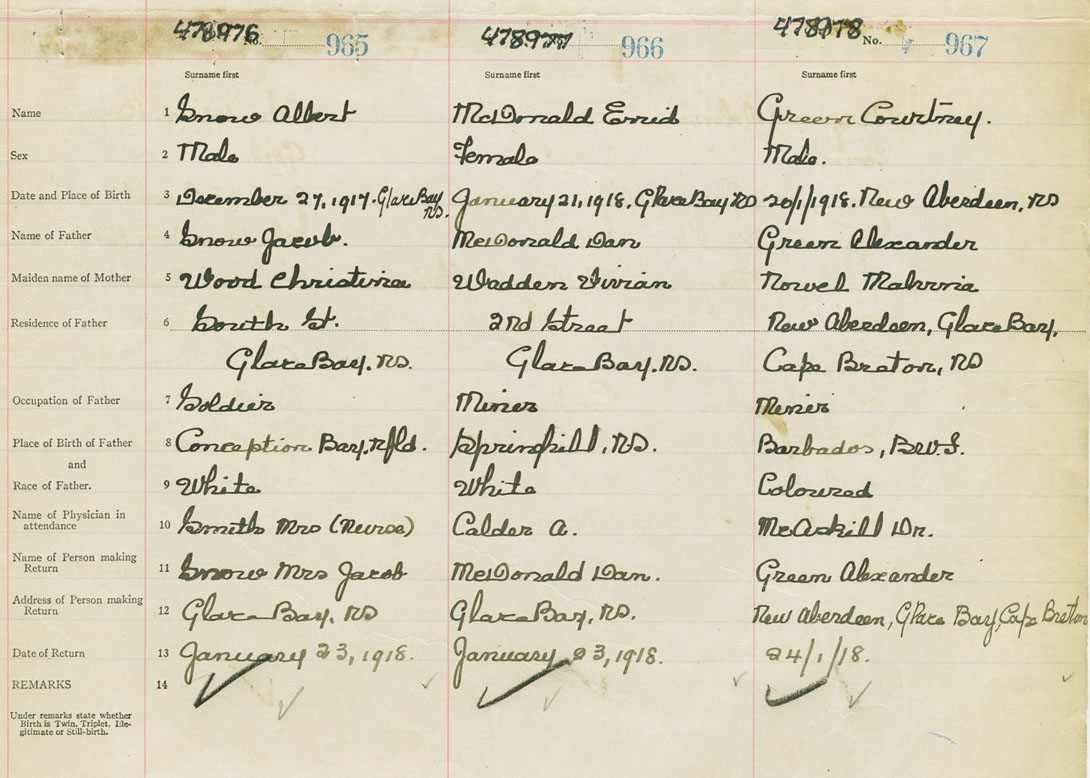 478976 No. 965 478977 966 478978 No. 967
Surname first Surname first Surname first
Name 1 Snow Albert McDonald Enid Green Courtney.
Sex 2 Male Female Male.
Date and Place of Birth 3 December 27, 1917. Glace Bay NS. January 21, 1918, Glace Bay NS 20/1/1918. New Aberdeen, NS
Name of Father 4 Snow Jacob. McDonald Dan Green Alexander
Maiden name of Mother 5 Wood Christina Wadden Vivian Malvina
Residence of Father 6 South St. 2nd Street New Aberdeen, Glace Bay,
Glace Bay, NS. Glace Bay, NS. Cape Breton, NS
Occupation of Father 7 Soldier Miner Miner
Place of Birth of Father 8 Conception Bay, Nfld. Springhill, NS. Barbados, B.W.I.
and
Race of Father. 9 White White Coloured
Name of Physician in attendance 10 Smith Mrs (Nurse) Calder A. McAskill Dr.
Name of Person making Return 11 Snow Mrs Jacob McDonald Dan. Green Alexander
Address of Person making Return 12 Glace Bay, NS Glace Bay, NS. New Aberdeen, Glace Bay, Cape Breton
Date of Return 13 January 23, 1918. January 23, 1918. 24/1/18.
REMARKS 14
Under remarks state whether
Birth is Twin, Triplet, Ille-
gitimate or Still-birth.